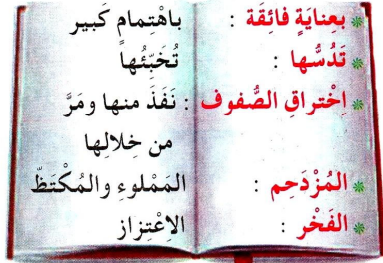 بِعِنايَةٍ فائِقَة : باهْتِمام كَبير
تَدُسُّها : تُخَبِّئُها
اِخْتراقِ الصُّفوف : نَفَذَ منها ومَرَّ
من خِلالِها
المُزْدَحِم : المَمْلوءِ والمُكْتَظّ
الفَخْر : الاِعْتِزاز